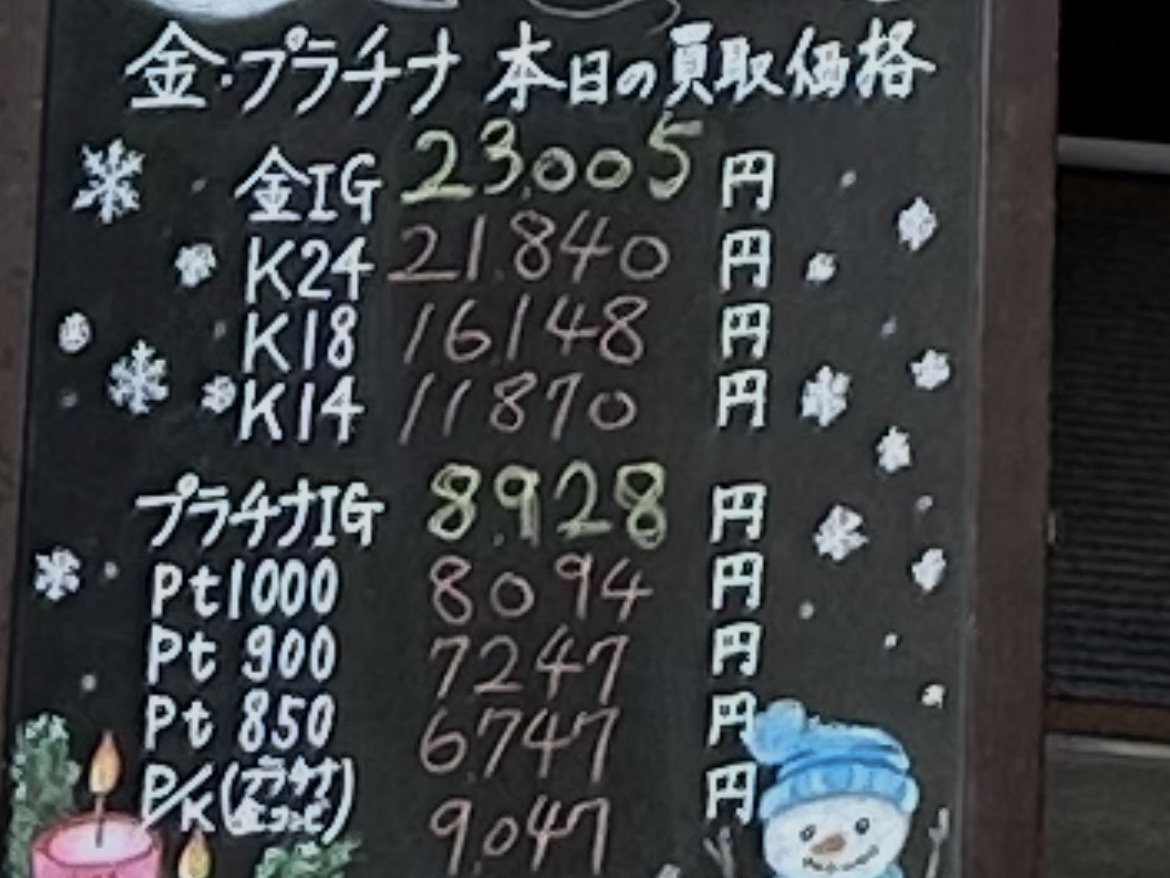 金・プラチナ 本日の買取価格
金IG 23,005 円
K24 21,840 円
K18 16,148 円
K14 11870 円
プラチナIG 8,928 円
Pt1000 8094 円
Pt 900 7247 円
Pt 850 6,747 円
P/K(プラチナ金コンビ) 9,047 円